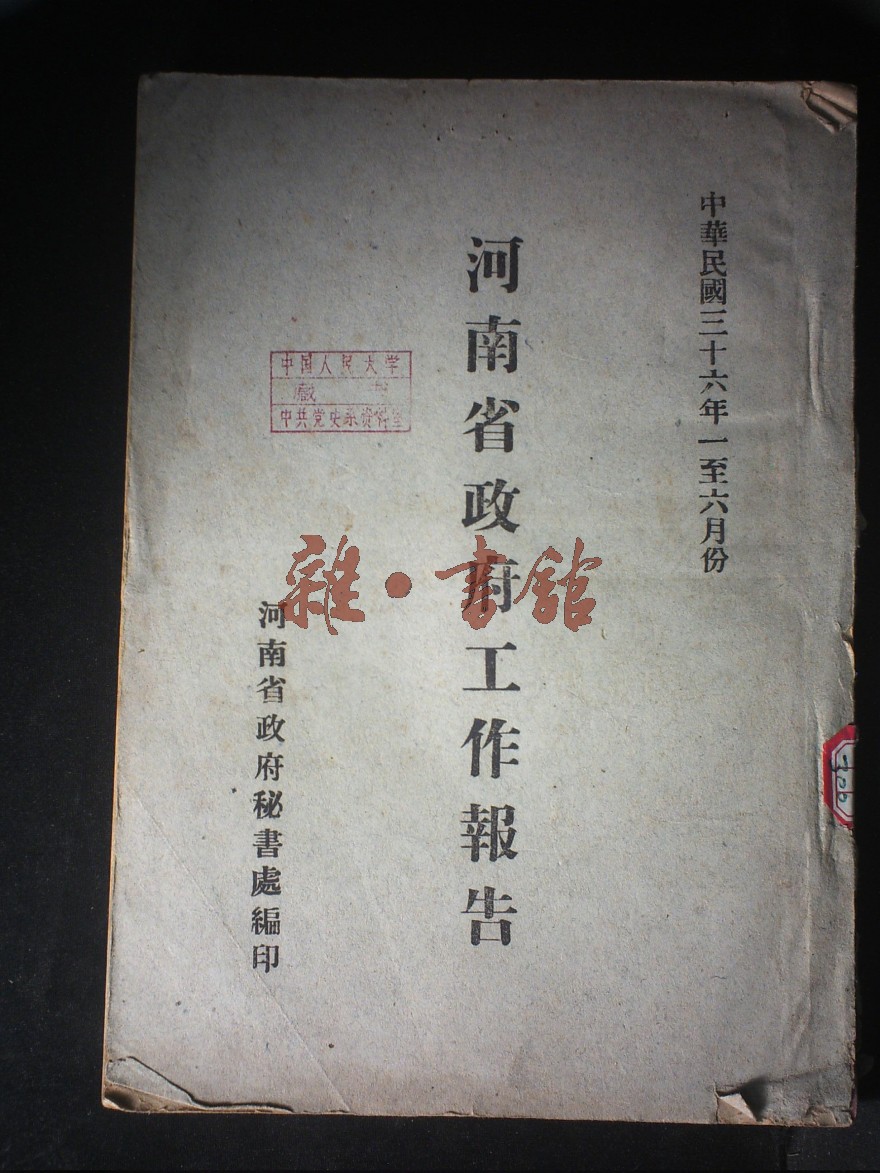 中華民國三十六年一至六月份
河南省政府工作報告
河南省政府秘書處編印
中国人民大学
藏 书
中共党史系资料室
雜·書館